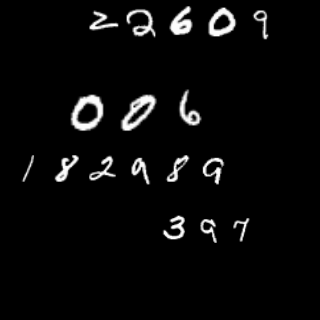 22609
006
182989
397